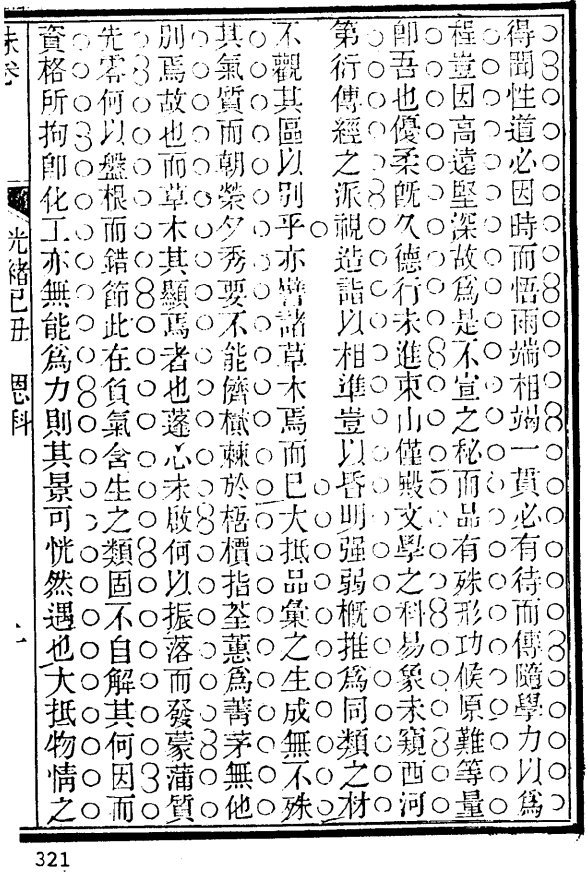 得聞性道必因時而悟兩端相竭一貫必有待而傳隨學力以爲
程豈因高遠堅深故爲是不宣之秘而品有殊形功候原難等量
卽吾也優柔旣久德行未進東山僅殿文學之科易象未窺西河
第衍傳經之派視造詣以相準豈以昏明强弱概推爲同類之材
不觀其區以別乎亦譬諸草木焉而已大抵品彙之生成無不殊
其氣質而朝榮夕秀要不能儕樲棘於梧檟指荃蕙爲菁茅無他
別焉故也而草木其顯焉者也蓬心未啟何以振落而發蒙蒲質
先零何以盤根而錯節此在負氣含生之類固不自解其何因而
資格所拘卽化工亦無能爲力則其景可恍然遇也大抵物情之
硃卷
光緒己丑 恩科
321